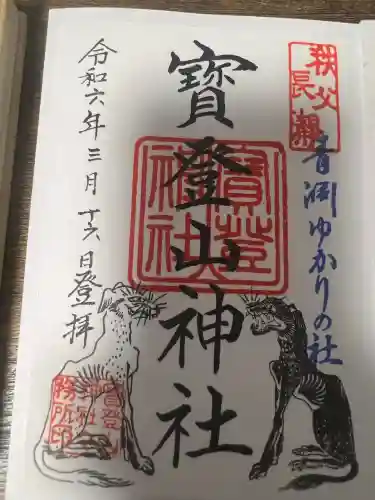 秩父
長瀞
青淵ゆかりの社
寳登山神社
寳登山
神社
令和六年三月十六日登拝
寳登山
神社社
務所印